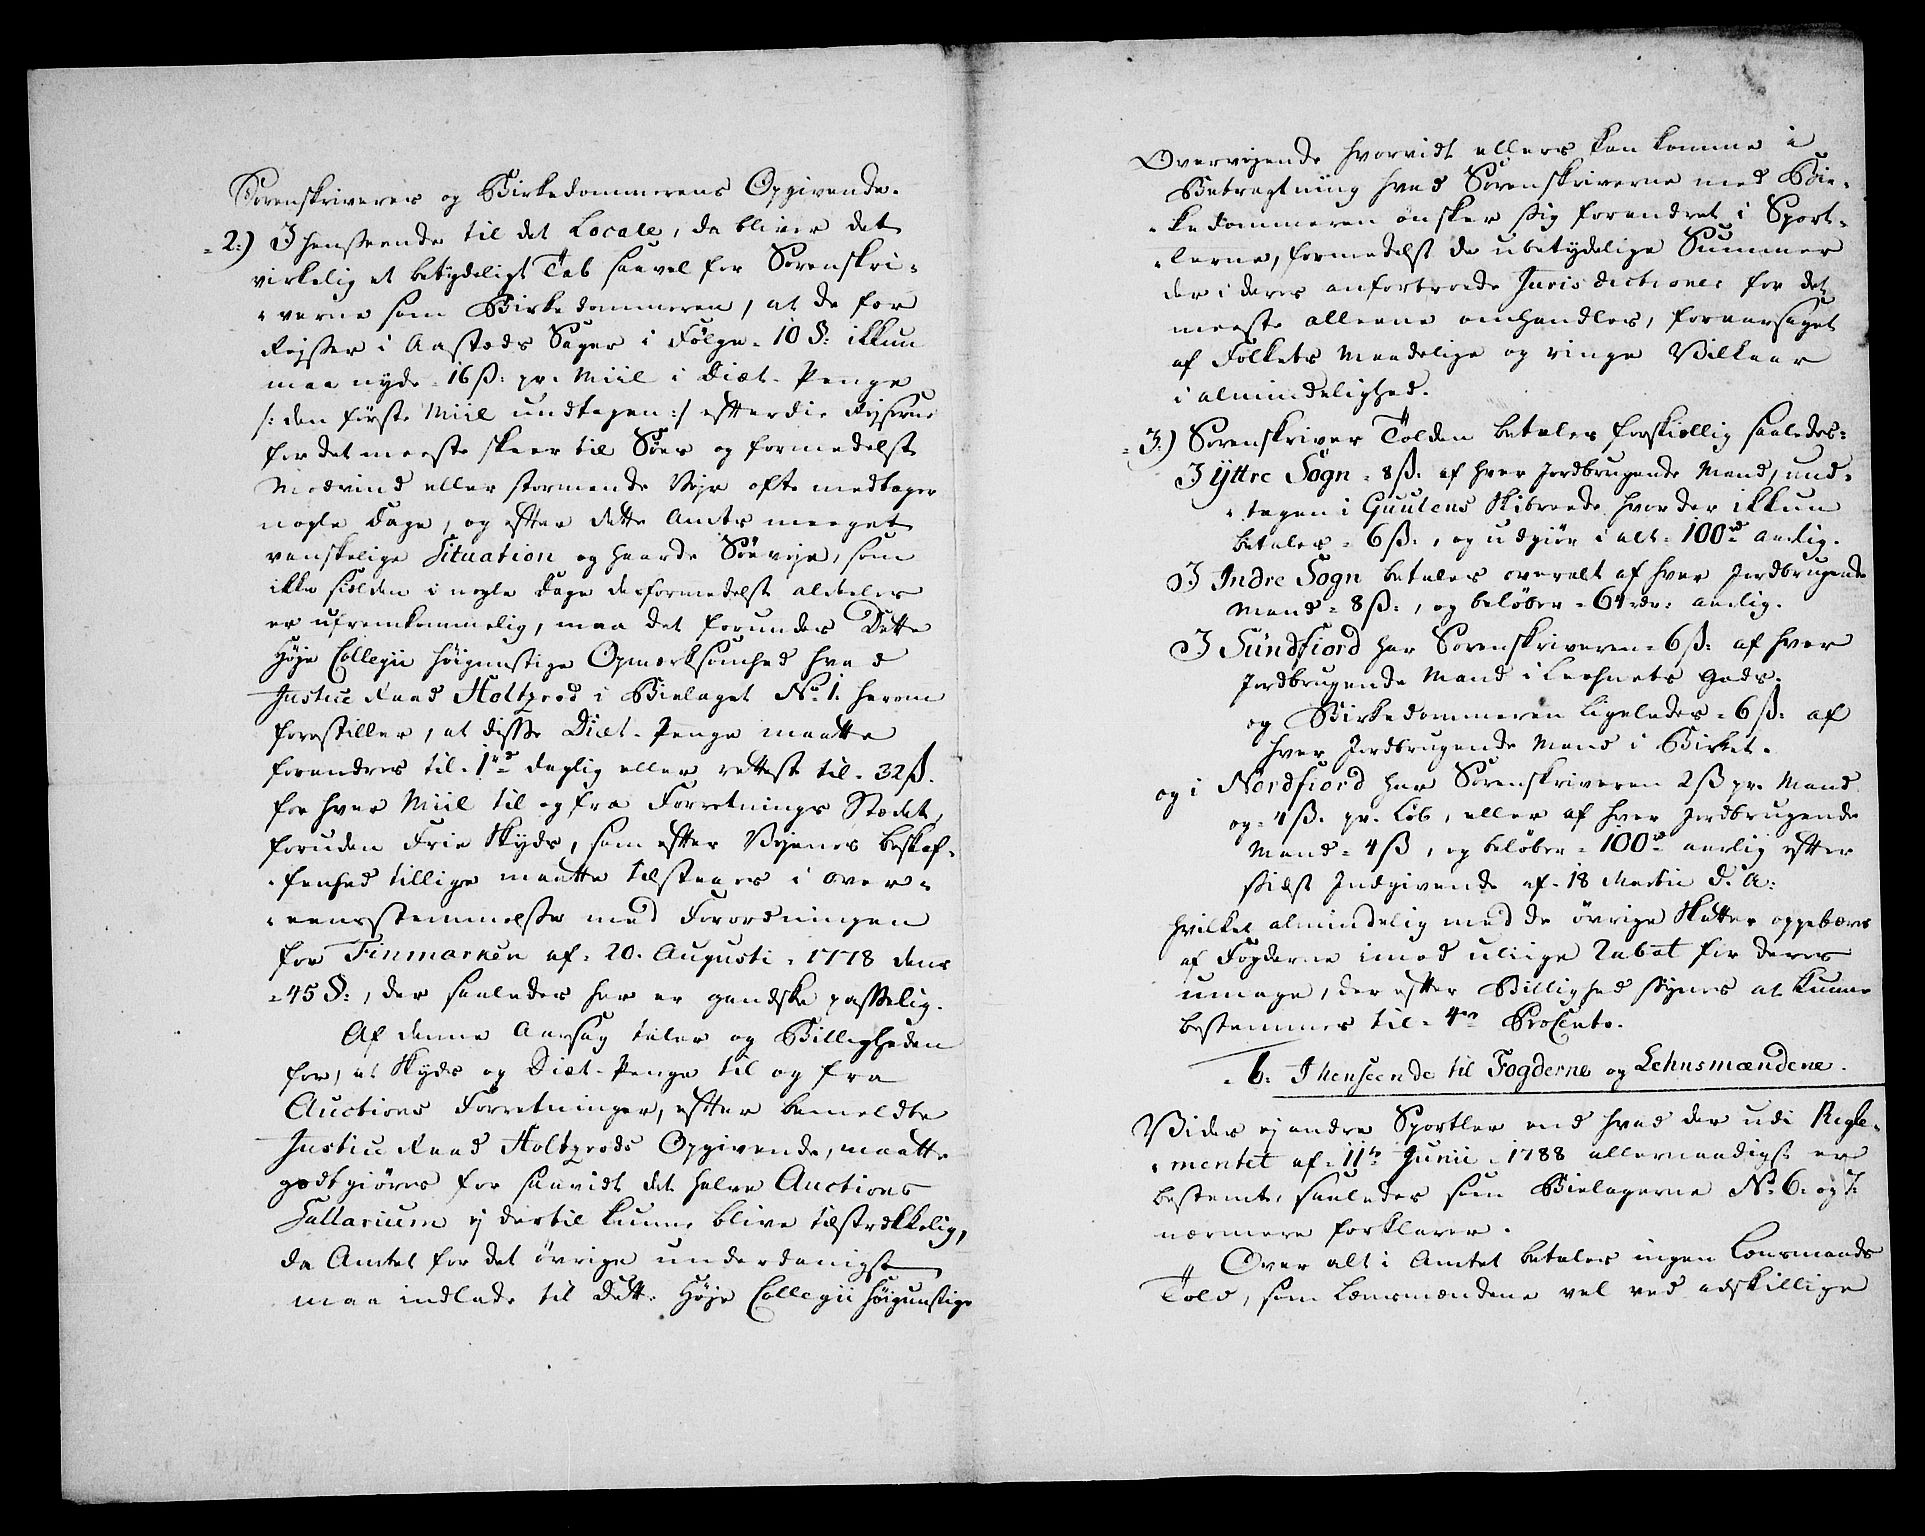 Sorenskriveres og Birkedommerens Opgivende.
2.) I henseende til det Locale, da bliver det
virkelig et betydeligt Tab saavel for Sorenskri-
verne som Birkedommeren, at de for
Rejser i Aasteds Sager i Følge 10 §: ikkun
maa nyde 16 ß: pr. Miil i Diæt-Penge
/: den første Miil undtagen :/ efterdi Rejserne
for det meeste skeer til Søes og formedelst
Modvind eller stormende Vejr ofte medtager
nogle Dage, og efter dette Amts meeget
vanskelige Situation og haarde Søeveje, som
ikke sielden i nogle Dage desformedelst aldeles
er ufremkommelig, maa det forundes Dette
Høje Collegii høigunstige Opmærksomhed hvad
Justice Raad Holtzrod i Bielaget No. 1. herom
forestiller, at disse Diæt-Penge maatte
forandres til 1 rd daglig eller rettest til 32 ß.
for hver Miil til og fra Forretnings Stædet,
foruden Frie Skyds, som efter Vejenes beskaf-
fenhed tillige maatte tilstaaes i over-
eensstemmelse med Forordningen
for Finmarken af 20. Augusti 1778 dens
45 §:, der saaledes her er gandske passelig.
Af denne Aarsag taler og Billigheden
for, at Skyds og Diæt-Penge til og fra
Auctions Forretninger, efter bemeldte
Justice Raad Holtzrods Opgivende, maatte
godtgiøres for saavidt det halve Auctions
Sallarium ej dertil kunne blive tilstrækkelig,
da Amtet for det øvrige underdanigst
maa indlade til Dette Høje Collegii høigunstige
Overvejende hvorvidt ellers kan komme i
Betragtning hvad Sorenskriverne med Bir-
kedommeren ønsker sig forandret i Sport-
lerne, formedelst de ubetydelige Summer
der i deres anfortroede Jurisdictioner for det
meeste alleene omhandles, foraarsaget
af Folkets maadelige og ringe Vilkaar
i almindelighed.
3.) Sorenskriver Tolden betales forskiellig saaledes:
I Yttre Sogn 8 ß. af hver Jordbrugende Mand, und-
tagen i Guulens Skibrede hvor der ikkun
betales 6 ß:, og udgiør i alt 100 rd aarlig.
I Indre Sogn betales overalt af hver Jordbrugende
Mand 8 ß:, og beløber 64 rdr: aarlig.
I Sundfiord har Sorenskriveren 6 ß: af hver
Jordbrugende Mand i Leehnets Gods.
og Birkedommeren ligeledes 6 ß: af
hver Jordbrugende Mand i Birket.
og i Nordfiord har Sorenskriveren 2 ß pr. Mand
og 1 ß. pr. Løb, eller af hver Jordbrugende
Mand 4 ß, og beløber 100 rd aarlig efter
sidst Indgivende af 18 Martii d. A:
hvilket almindelig med de øvrige Skatter oppebæres
af Fogderne imod uliige Rabat for deres
umage, der efter Billighed synes at kunne
bestemmes til 4re Procento.
b. I henseende til Fogderne og Lehnsmændene.
Vides ej andre Sportler end hvad der udi Regle-
mentet af 11te Junii 1788 allernaadigst er
bestemt, saaledes som Bielagerne No. 6. og 7.
nærmere forklarer.
Over alt i Amtet betales ingen Lænsmands
Told, som Lænsmændene vel ved adskillige